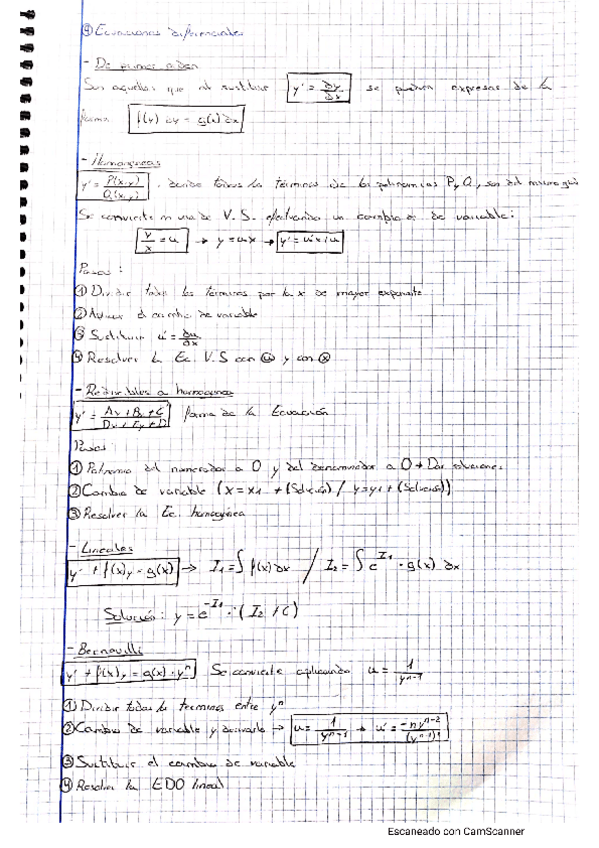 ④ Ecuaciones diferenciales
- De primer orden
Son aquellas que al sustituir y' = ∂y/∂x se pueden expresar de la
forma f(y) ∂y = g(x) ∂x
- Homogéneas
y' = P(x,y)/Q(x,y), donde todos los términos de los polinomios P y Q, son del mismo
Se convierte en una de V.S. efectuando un cambio de variable:
y/x = u → y = ux → y' = u'x + u
Pasos:
① Dividir todos los términos por la x de mayor exponente
② el cambio de variable
③ Sustituir u' = ∂u/∂x
④ Resolver la Ec. V.S con u y con x
- Reducibles a homogéneas
y' = Ax + By + C/Dx + Ey + D forma de la Ecuación
Pasos:
① Polinomio del numerador a 0 y del denominador a 0 → Dos soluciones
② Cambio de variable (x = x1 + (Solución) / y = y1 + (Solución))
③ Resolver la Ec. homogénea
- Lineales
y' + f(x)y = g(x) → I1 = ∫ f(x) ∂x / I2 = ∫ e^I1 · g(x) ∂x
Solución: y = e^-I1 · (I2 + C)
- Bernouilli
y' + f(x)y = g(x) · y^n Se convierte aplicando u = 1/y^n-1
① Dividir todos los términos entre y^n
② Cambio de variable y derivarlo → u = 1/y^n-1 → u' =
③ Sustituir el cambio de variable
④ Resolver la EDO lineal
Escaneado con CamScanner